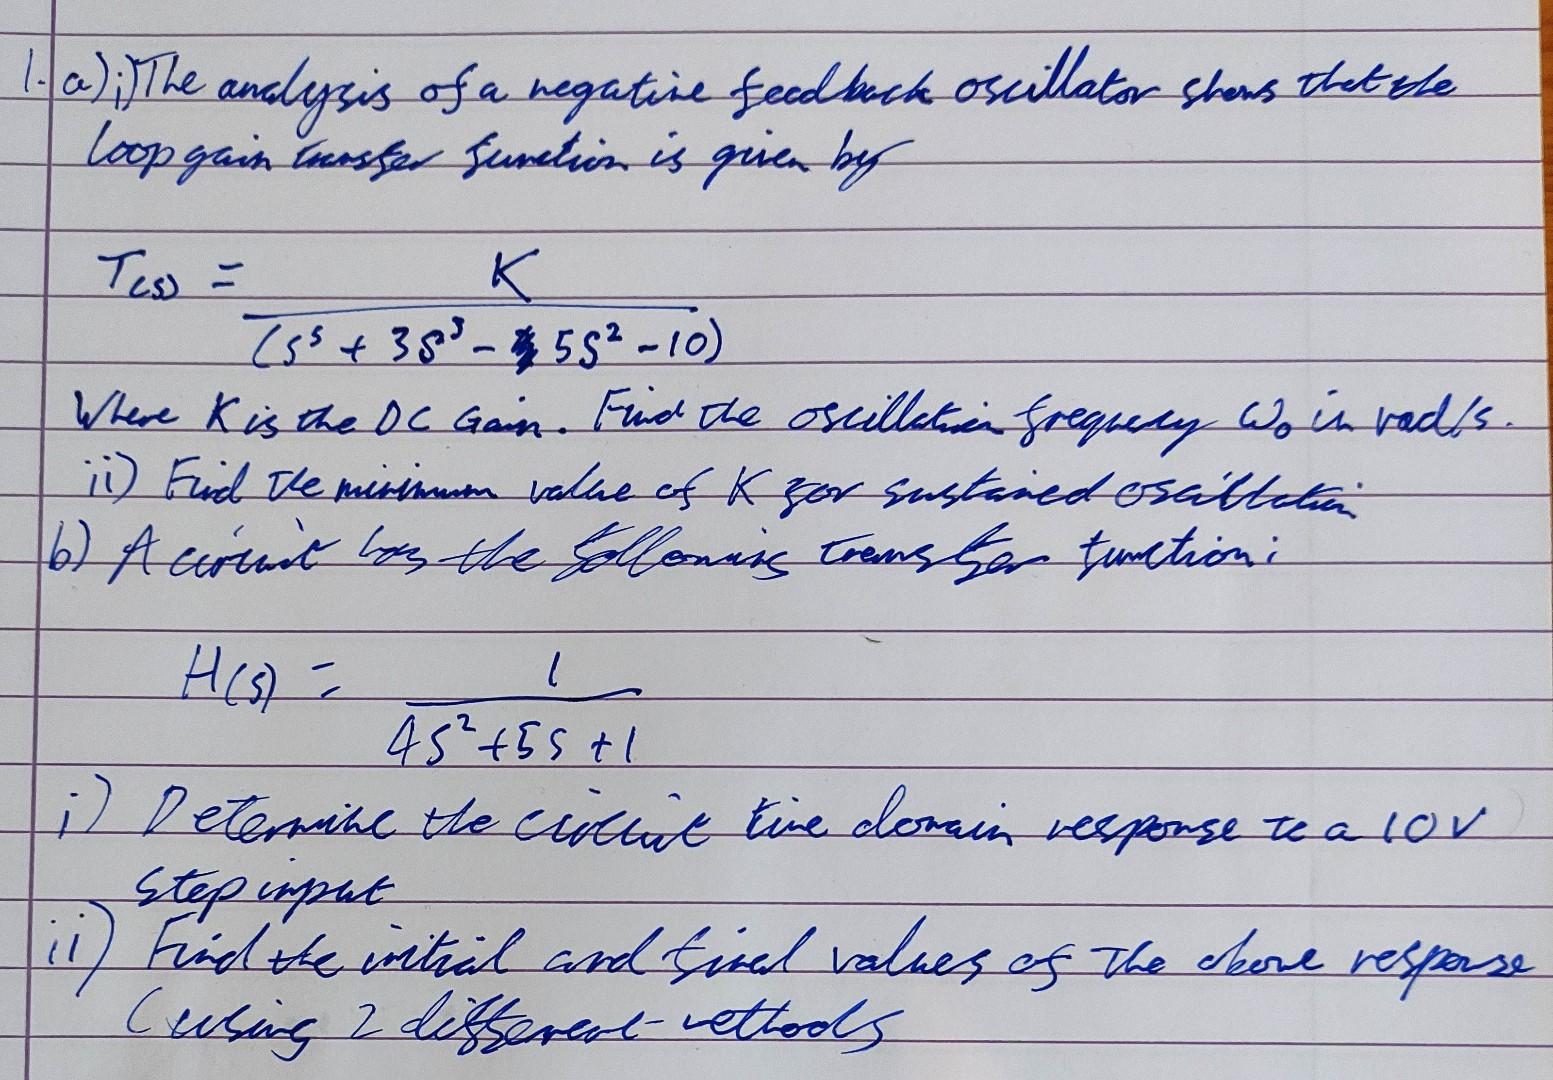 1. a) i) The analysis of a negative feedback oscillator shows that the
loop gain transfer function is given by
T(s) = K
(s⁵ + 3s³ - 5s² - 10)
Where K is the DC Gain. Find the oscillation frequency ω₀ in rad/s.
ii) Find the minimum value of K for sustained oscillation
b) A circuit has the following transfer function:
H(s) = 1
4s² + 5s + 1
i) Determine the circuit time domain response to a 10V
step input
ii) Find the initial and final values of the above response
(using 2 different methods